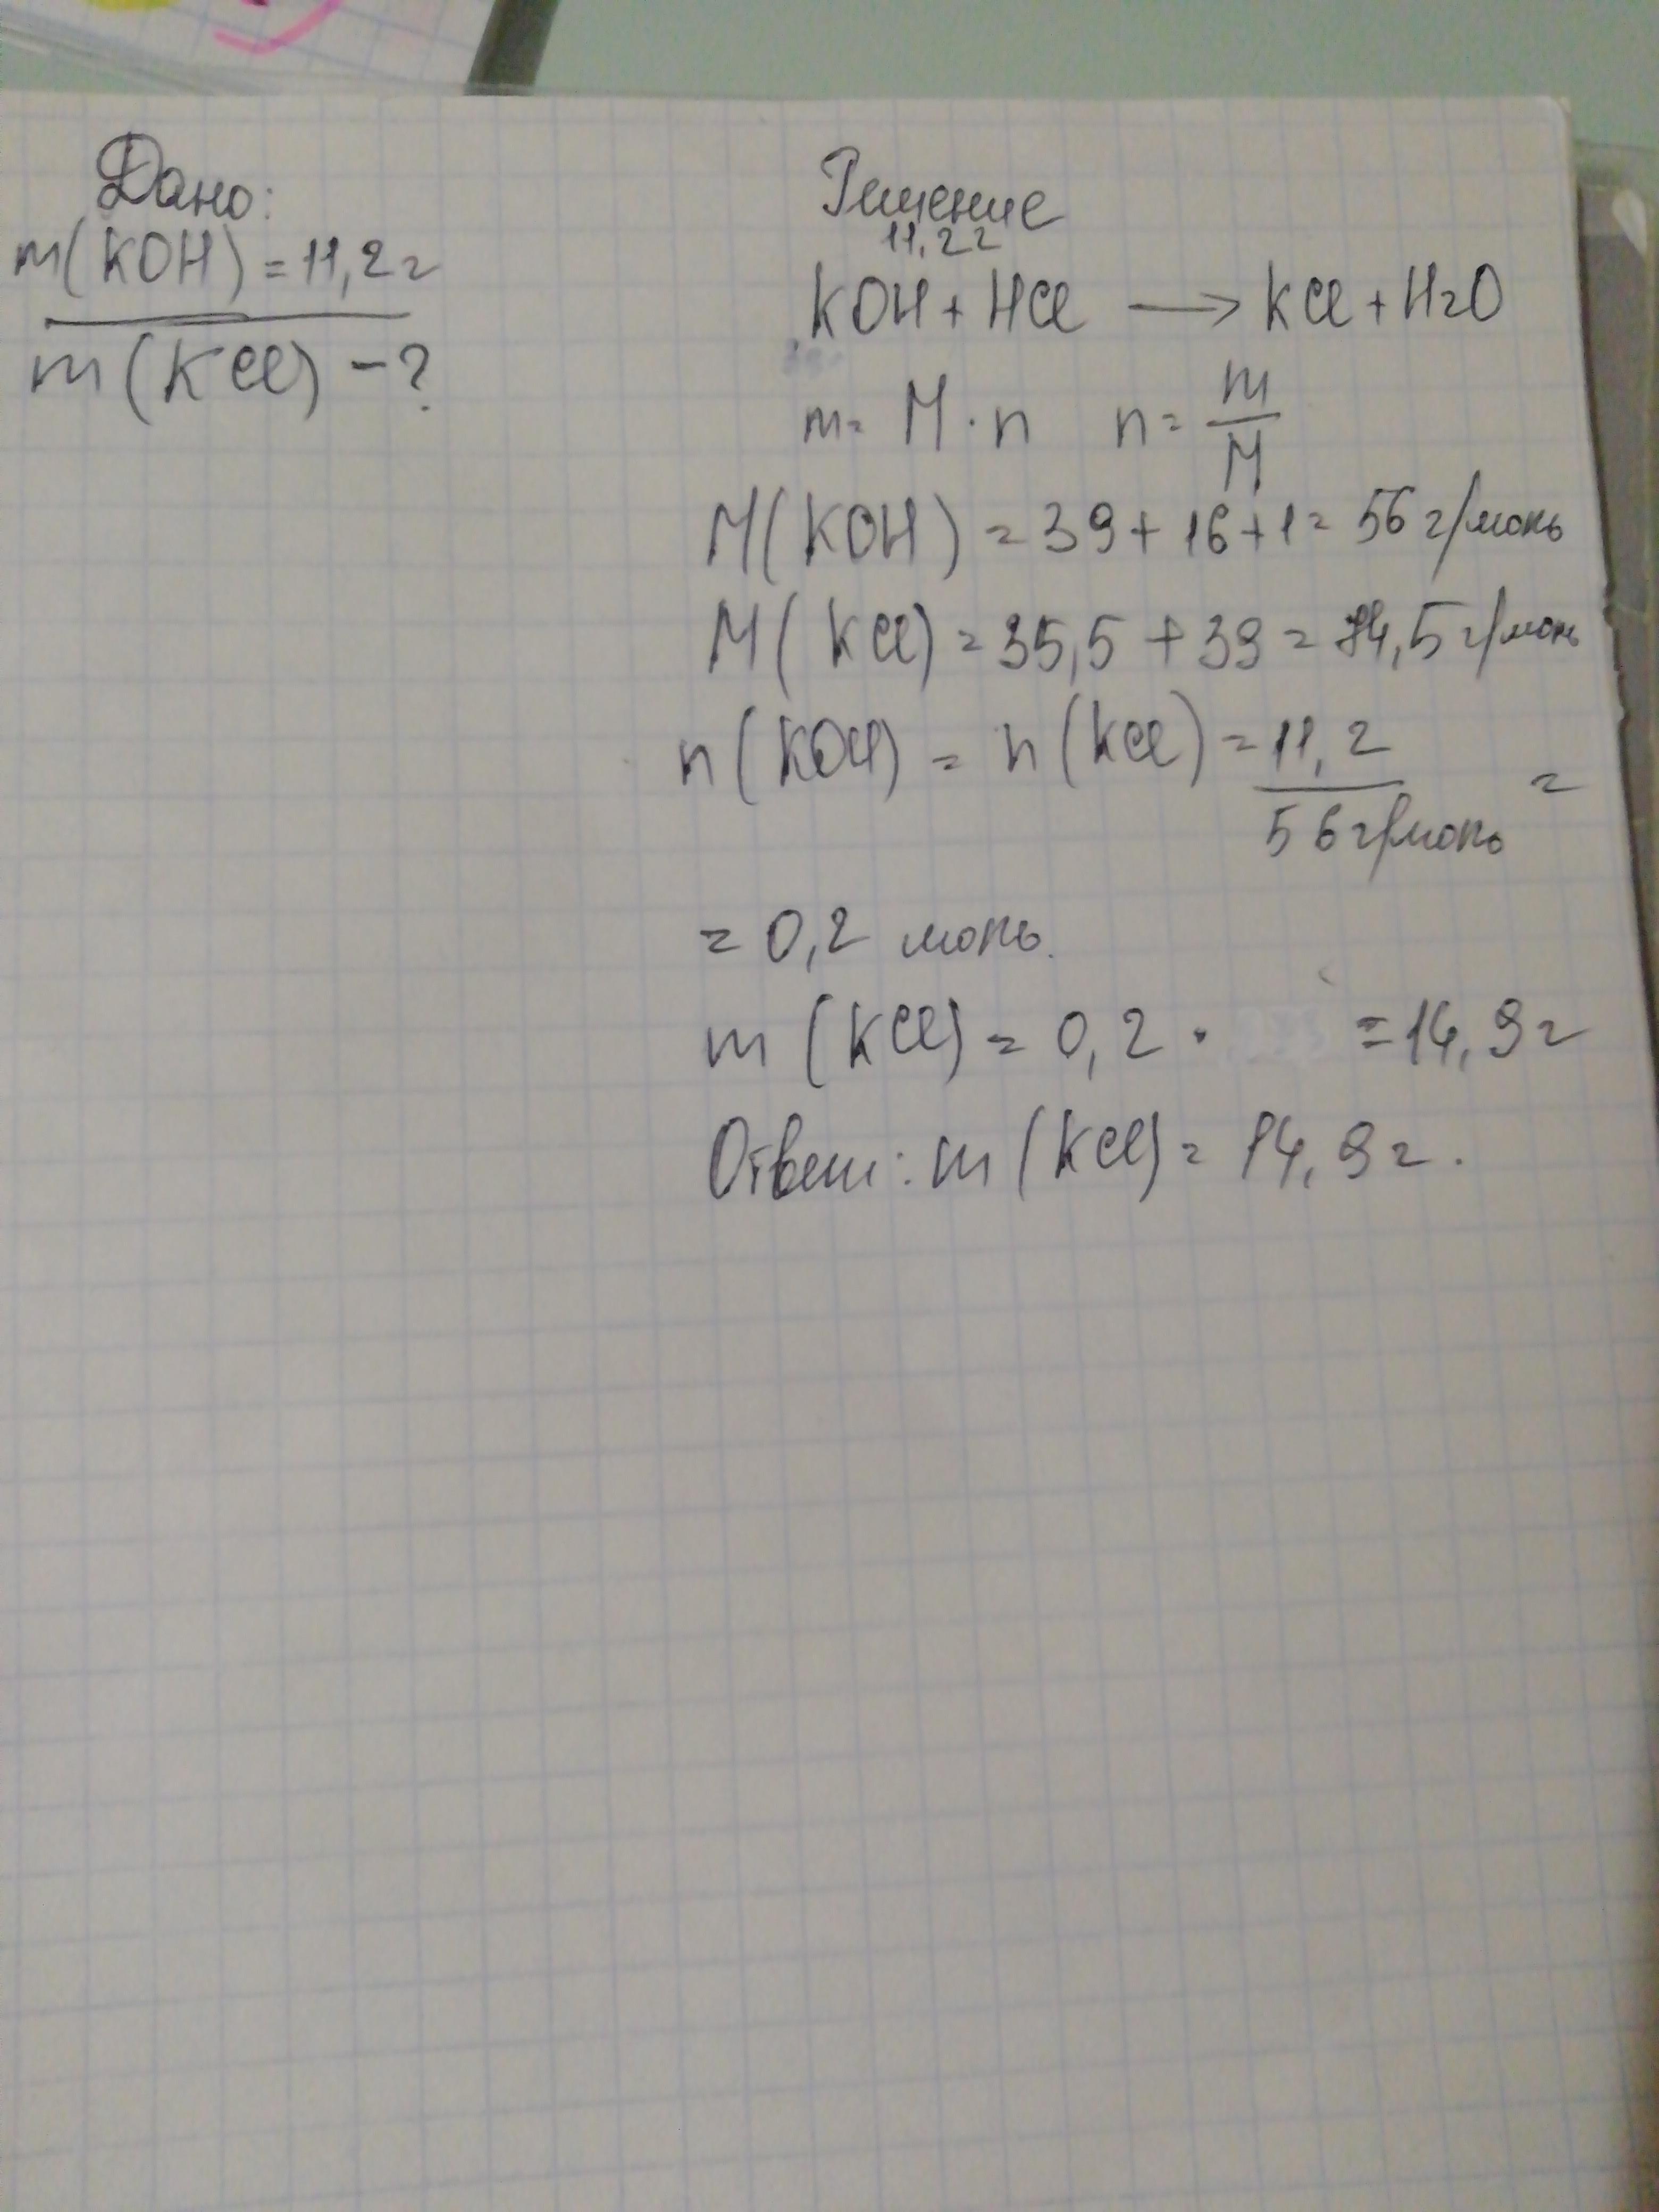 Дано:
m(KOH) = 11,2г
m(KCl) - ?
Решение
11,2г
KOH + HCl → KCl + H2O
m = M · n   n = m/M
M(KOH) = 39 + 16 + 1 = 56 г/моль
M(KCl) = 35,5 + 39 = 74,5 г/моль
n(KOH) = n(KCl) = 11,2 / 56 г/моль =
= 0,2 моль.
m(KCl) = 0,2 · = 14,9г
Ответ: m(KCl) = 14,9г.